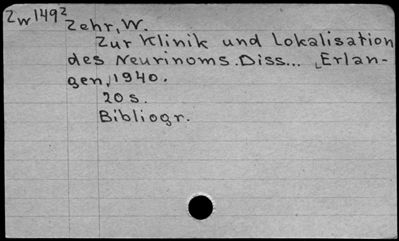 Zw 1492
Zehr, W.
Zur Klinik und Lokalisation
des Neurinoms. Diss... Erlan-
gen, 1940.
20 s.
Bibliogr.